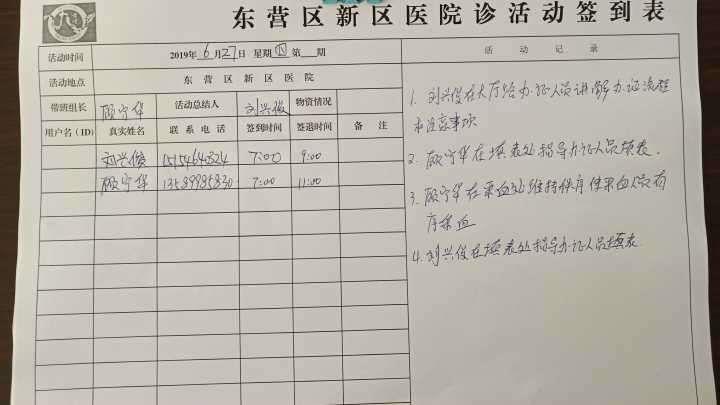 东营区新区医院诊活动签到表
活动时间 2019年6月27日 星期四 第 期
活动记录
活动地点 东营区新区医院
带班组长 顾宁华 活动总结人 刘兴俊 物资情况
用户名(ID) 真实姓名 联系电话 签到时间 签退时间 备注
刘兴俊 7:00 9:00
顾宁华 13589985830 7:00 11:00
1. 刘兴俊在大厅给办证人员讲解办证流程
和注意事项
2. 顾宁华在填表处指导办证人员填表.
3. 顾宁华在采血处维持秩序使采血人员有
序采血
4. 刘兴俊在填表处指导办证人员填表